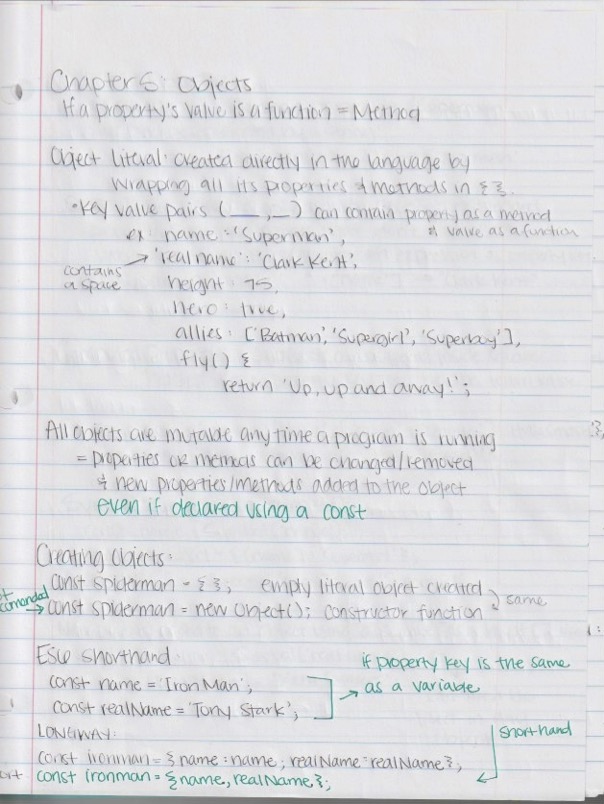 Chapter 5: Objects
If a property's value is a function = Method
Object Literal: created directly in the language by
wrapping all its properties & methods in { }.
• Key value pairs ( __ , _ ) can contain property as a method
& value as a function
ex: name: 'Superman',
→ 'real name': 'Clark Kent',
contains
a space
height 75,
hero: true,
allies: ['Batman', 'Supergirl', 'Superboy'],
fly() {
return 'Up, up and away!';
All objects are mutable any time a program is running
= properties or methods can be changed/removed
& new properties/methods added to the object
even if declared using a const
Creating Objects:
const spiderman = { }; empty literal object created
→ const spiderman = new Object(); constructor function
same
ES6 shorthand:
if property key is the same
as a variable
const name = 'Iron Man';
const realName = 'Tony Stark';
LONGWAY:
shorthand
const ironman = {name: name, realName: realName};
const ironman = {name, realName};